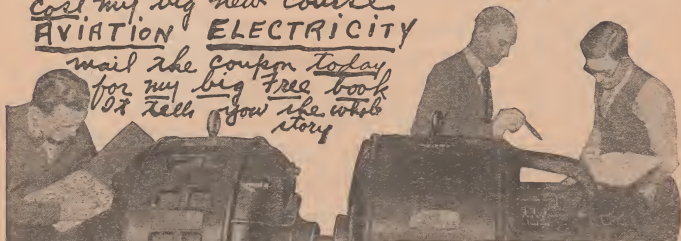 cost my big new course
AVIATION ELECTRICITY
mail the coupon today
for my big Free book
It tells you the whole
story